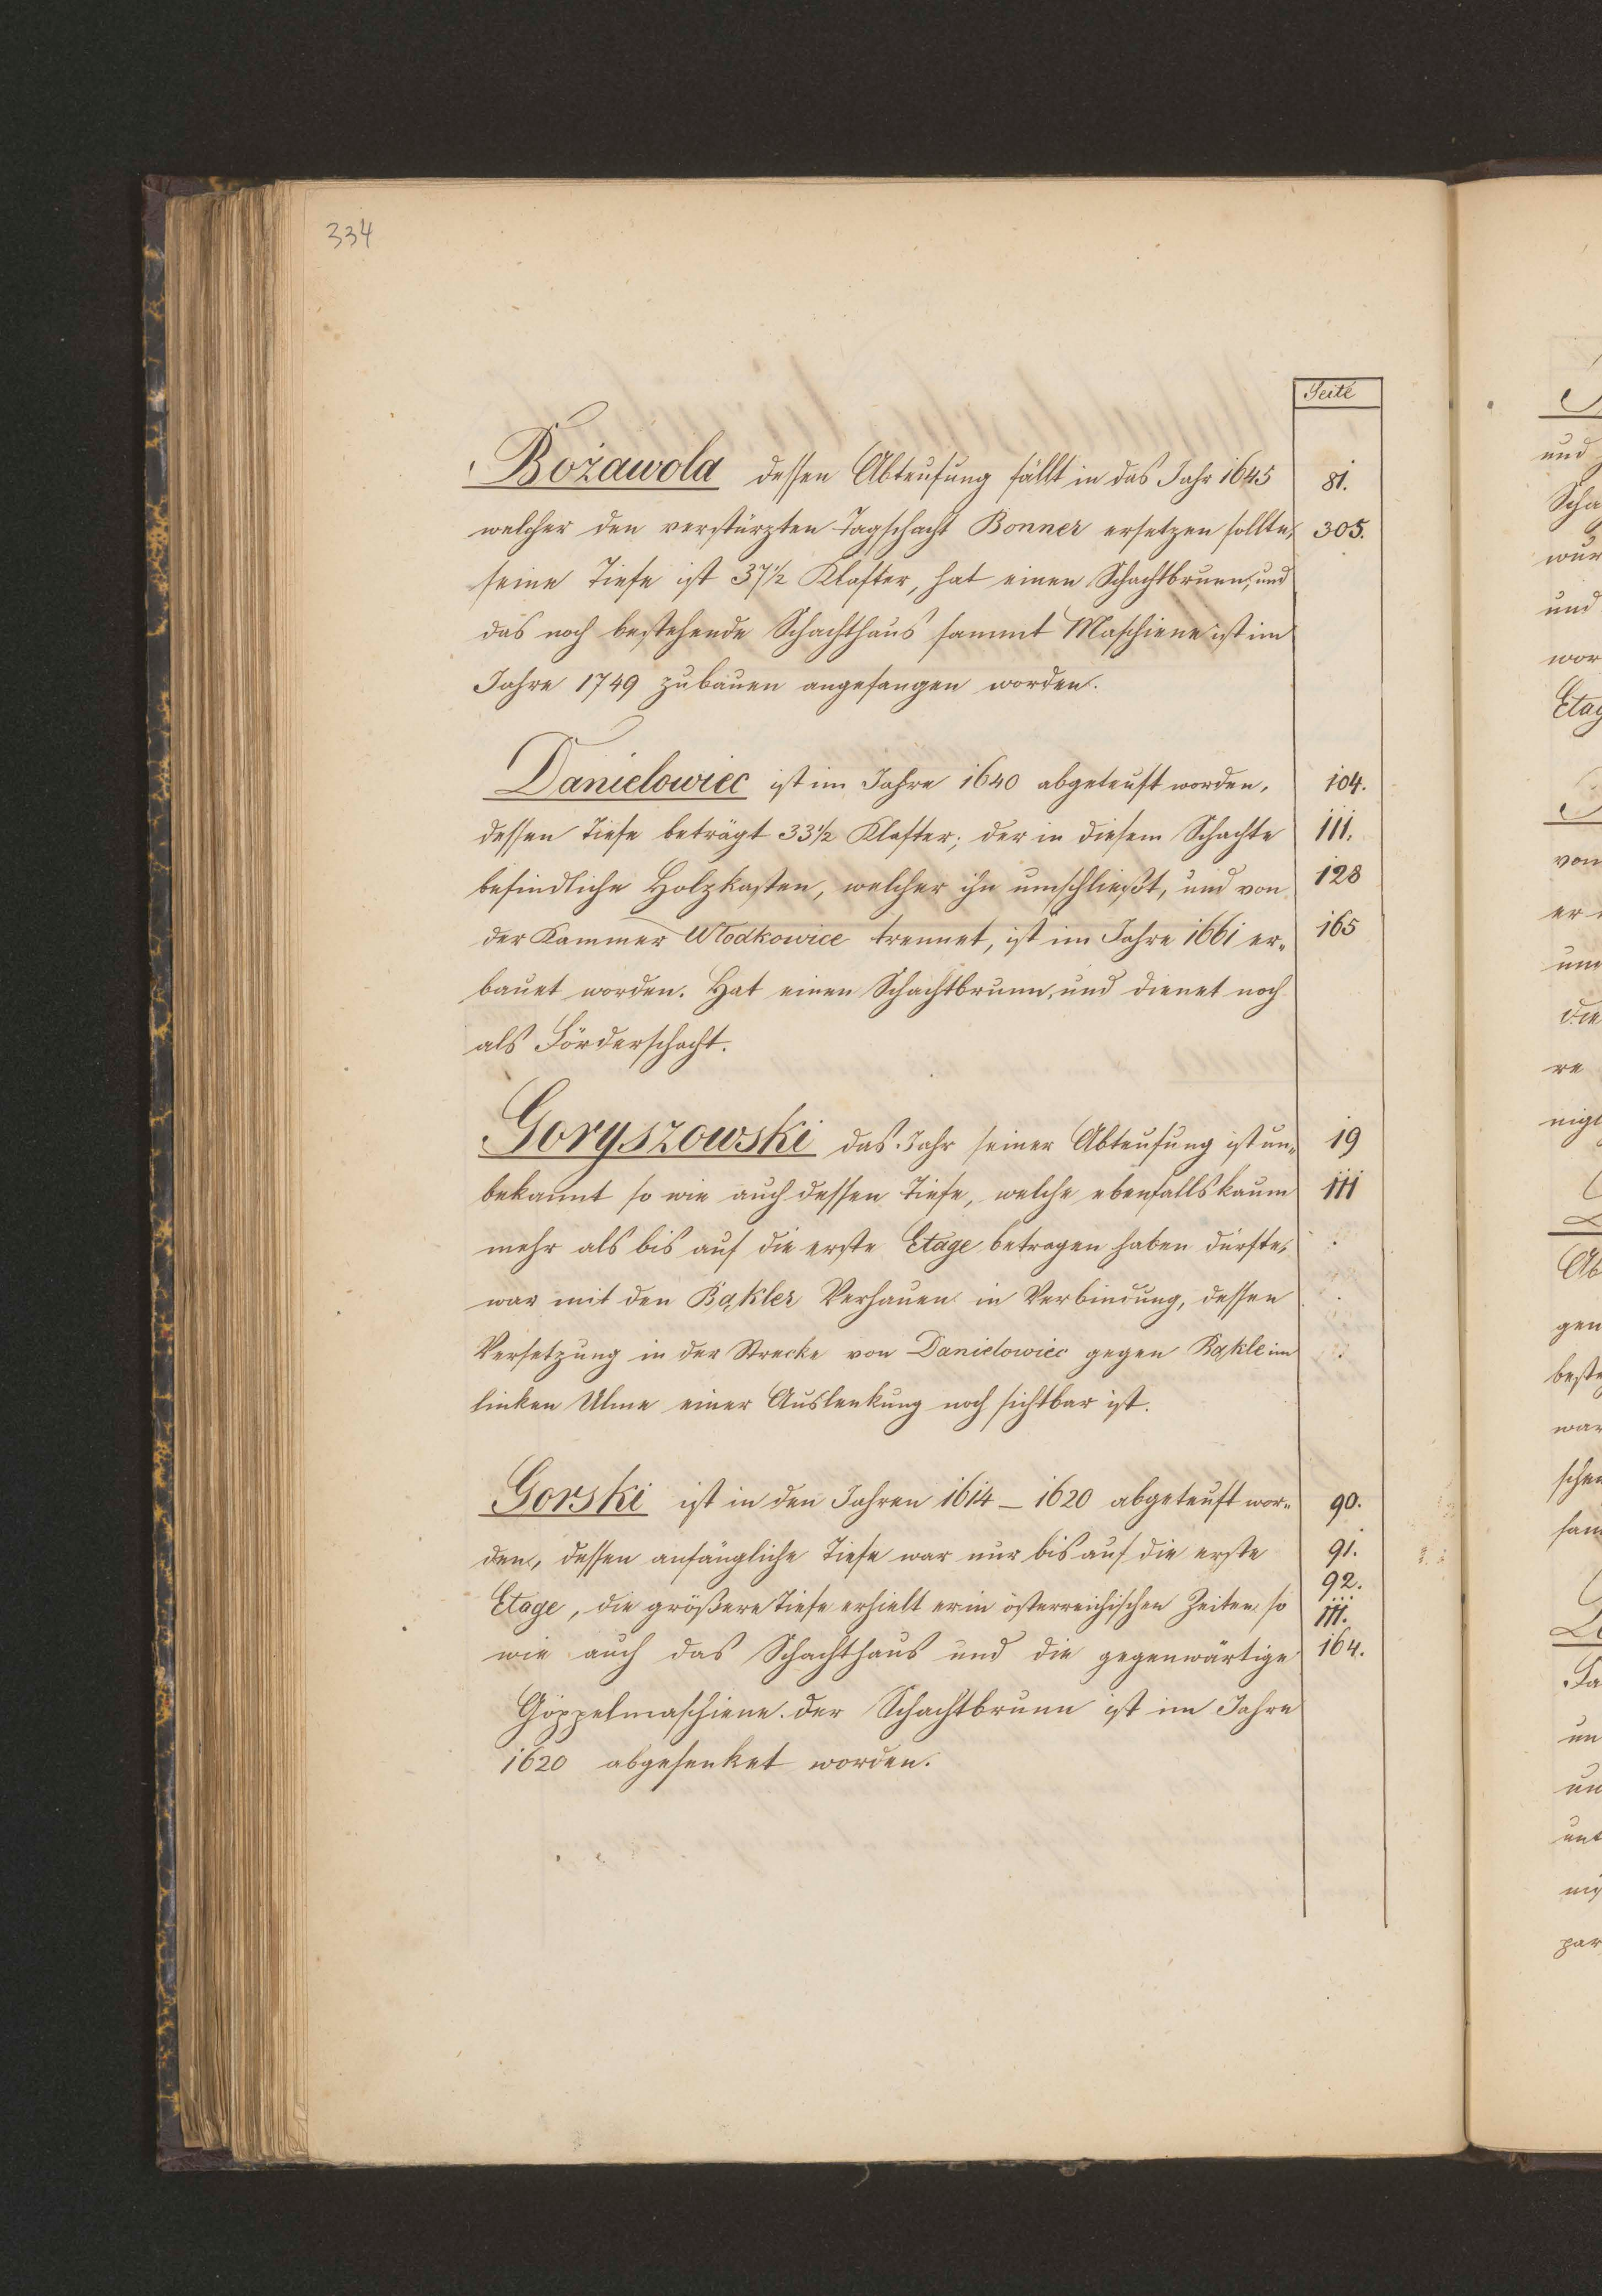 334
Seite
Bożawola dessen Abteufung fällt in das Jahr 1645 81.
welcher den verstürzten Tagschacht Bonner ersetzen sollte, 305.
seine Tiefe ist 37½ Klafter, hat einen Schachtbrunn, und
das noch bestehende Schachthaus sammt Maschiene ist im
Jahre 1749 zubauen angefangen worden.
Danielowiec ist im Jahre 1640 abgeteuft worden, 104.
dessen Tiefe beträgt 33½ Klafter; der in diesem Schachte 111.
befindliche Holzkasten, welcher ihn umschließt, und von 128
der Kammer Włodkowice trennet, ist im Jahre 1661 er- 165
bauet worden. Hat einen Schachtbrunn, und dienet noch
als Förderschacht.
Goryszowski das Jahr seiner Abteufung ist un- 19
bekannt so wie auch dessen Tiefe, welche ebenfalls kaum 111
mehr als bis auf die erste Etage betragen haben dürfte,
war mit den Bąkler Verhauen in Verbindung, dessen
Versetzung in der Strecke von Danielowiec gegen Bąkle im
linken Ulme einer Auslenkung noch sichtbar ist.
Gorski ist in den Jahren 1614 – 1620 abgeteuft wor- 90.
den, dessen anfängliche Tiefe war nur bis auf die erste 91.
92.
Etage, die größere Tiefe erhielt er in österreichischen Zeiten so 111.
wie auch das Schachthaus und die gegenwärtige 164.
Göppelmaschiene. der Schachtbrunn ist im Jahre
1620 abgesenket worden.